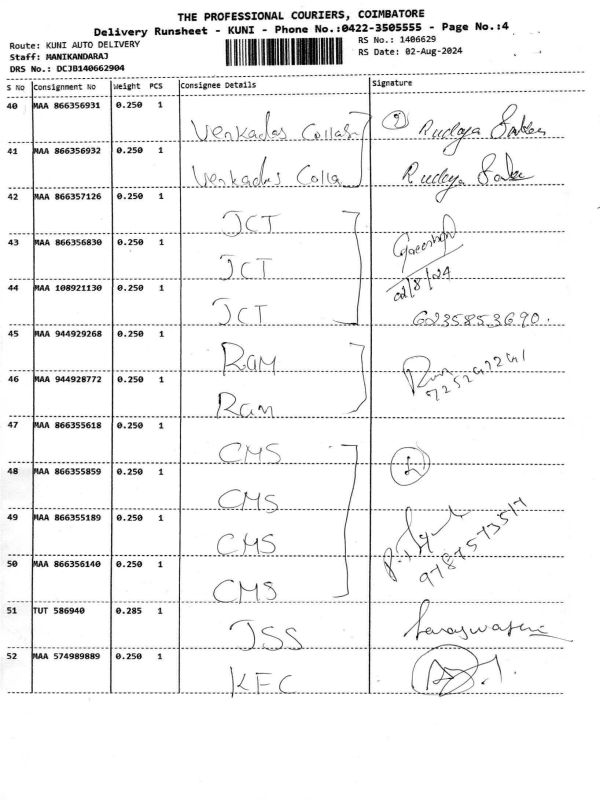 THE PROFESSIONAL COURIERS, COIMBATORE
Delivery Runsheet - KUNI - Phone No.:0422-3505555 - Page No.:4
Route: KUNI AUTO DELIVERY
RS No.: 1406629
Staff: MANIKANDARAJ
RS Date: 02-Aug-2024
DRS No.: DCJB140662904
S No Consignment No Weight PCS Consignee Details Signature
40 MAA 866356931 0.250 1 Venkadas
41 MAA 866356932 0.250 1 Venkadas Colla
42 MAA 866357126 0.250 1 JCT
43 MAA 866356830 0.250 1 JCT
02/8/24
44 MAA 108921130 0.250 1 JCT 6235853690.
45 MAA 944929268 0.250 1 RAM
46 MAA 944928772 0.250 1 RAM
47 MAA 866355618 0.250 1 CMS
48 MAA 866355859 0.250 1 CMS
49 MAA 866355189 0.250 1 CMS
50 MAA 866356140 0.250 1 CMS
51 TUT 586940 0.285 1 JSS
52 MAA 574989889 0.250 1 KFC